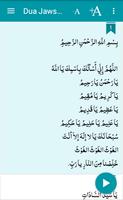 Dua Jaws...
A
A
1
بِسْمِ اللَّهِ الرَّحْمَنِ الرَّحِيمِ
اللَّهُمَّ إِنِّي أَسْأَلُكَ بِاسْمِكَ يَا اللَّهُ
يَا رَحْمَنُ يَا رَحِيمُ يَا كَرِيمُ
يَا مُقِيمُ يَا عَظِيمُ يَا قَدِيمُ
يَا عَلِيمُ يَا حَلِيمُ يَا حَكِيمُ
سُبْحَانَكَ يَا لَا إِلَهَ إِلَّا أَنْتَ
الْغَوْثَ الْغَوْثَ الْغَوْثَ
خَلِّصْنَا مِنَ النَّارِ يَا رَبِّ
يَا سَيِّدَ السَّادَاتِ